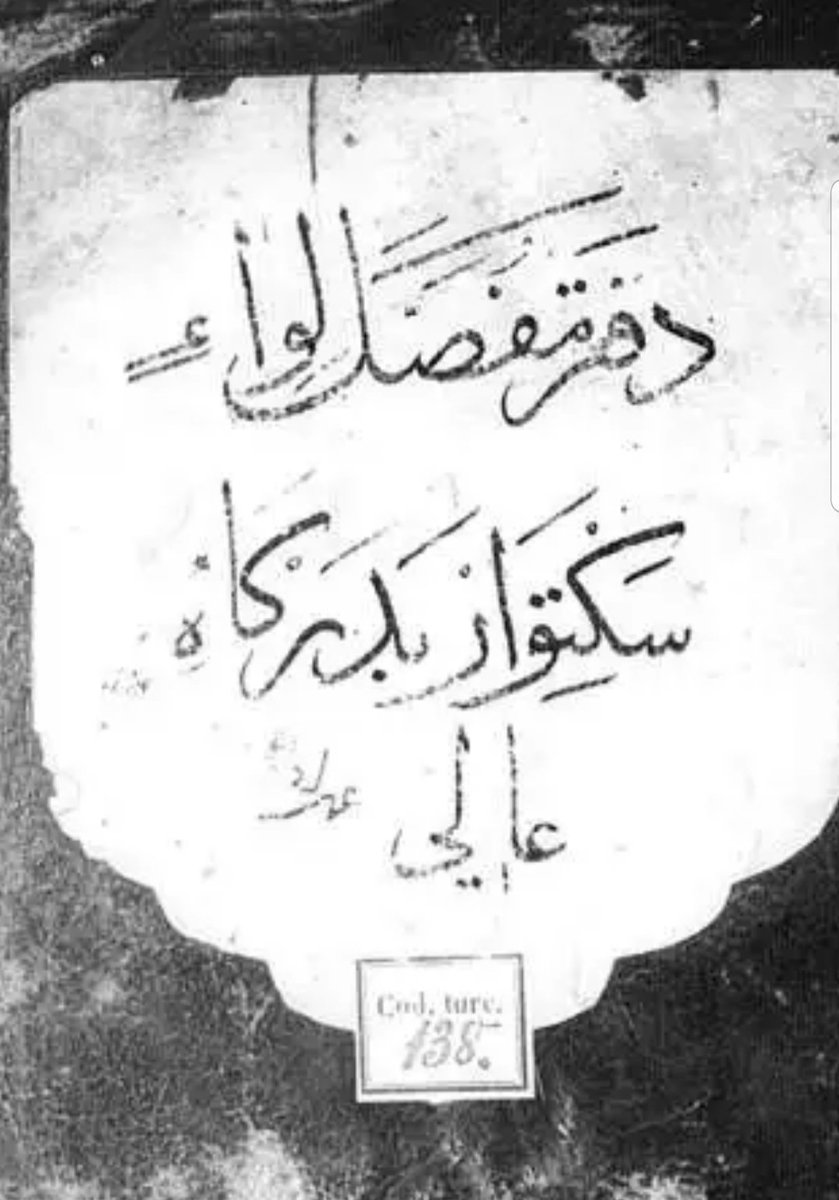 دفتر مفصل لواء
سكتوار بدركاه
عالی
Cod. turc.
138.